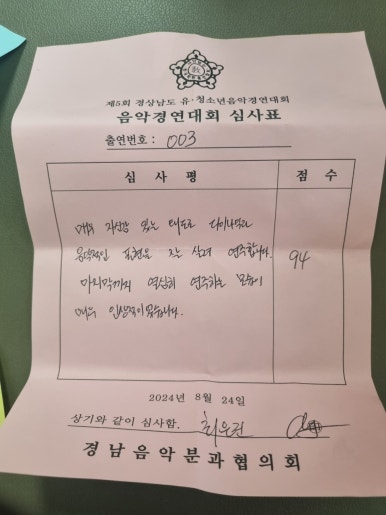 제5회 경상남도 유·청소년음악경연대회
음악경연대회 심사표
출연번호 : 003
심 사 평 점 수
매우 자신감 있는 태도로 다이나믹과
음악적인 표현을 잘 살려 연주합니다. 94
마지막까지 열심히 연주하는 모습이
매우 인상적이었습니다.
2024년 8월 24일
상기와 같이 심사함.
경남음악분과협의회